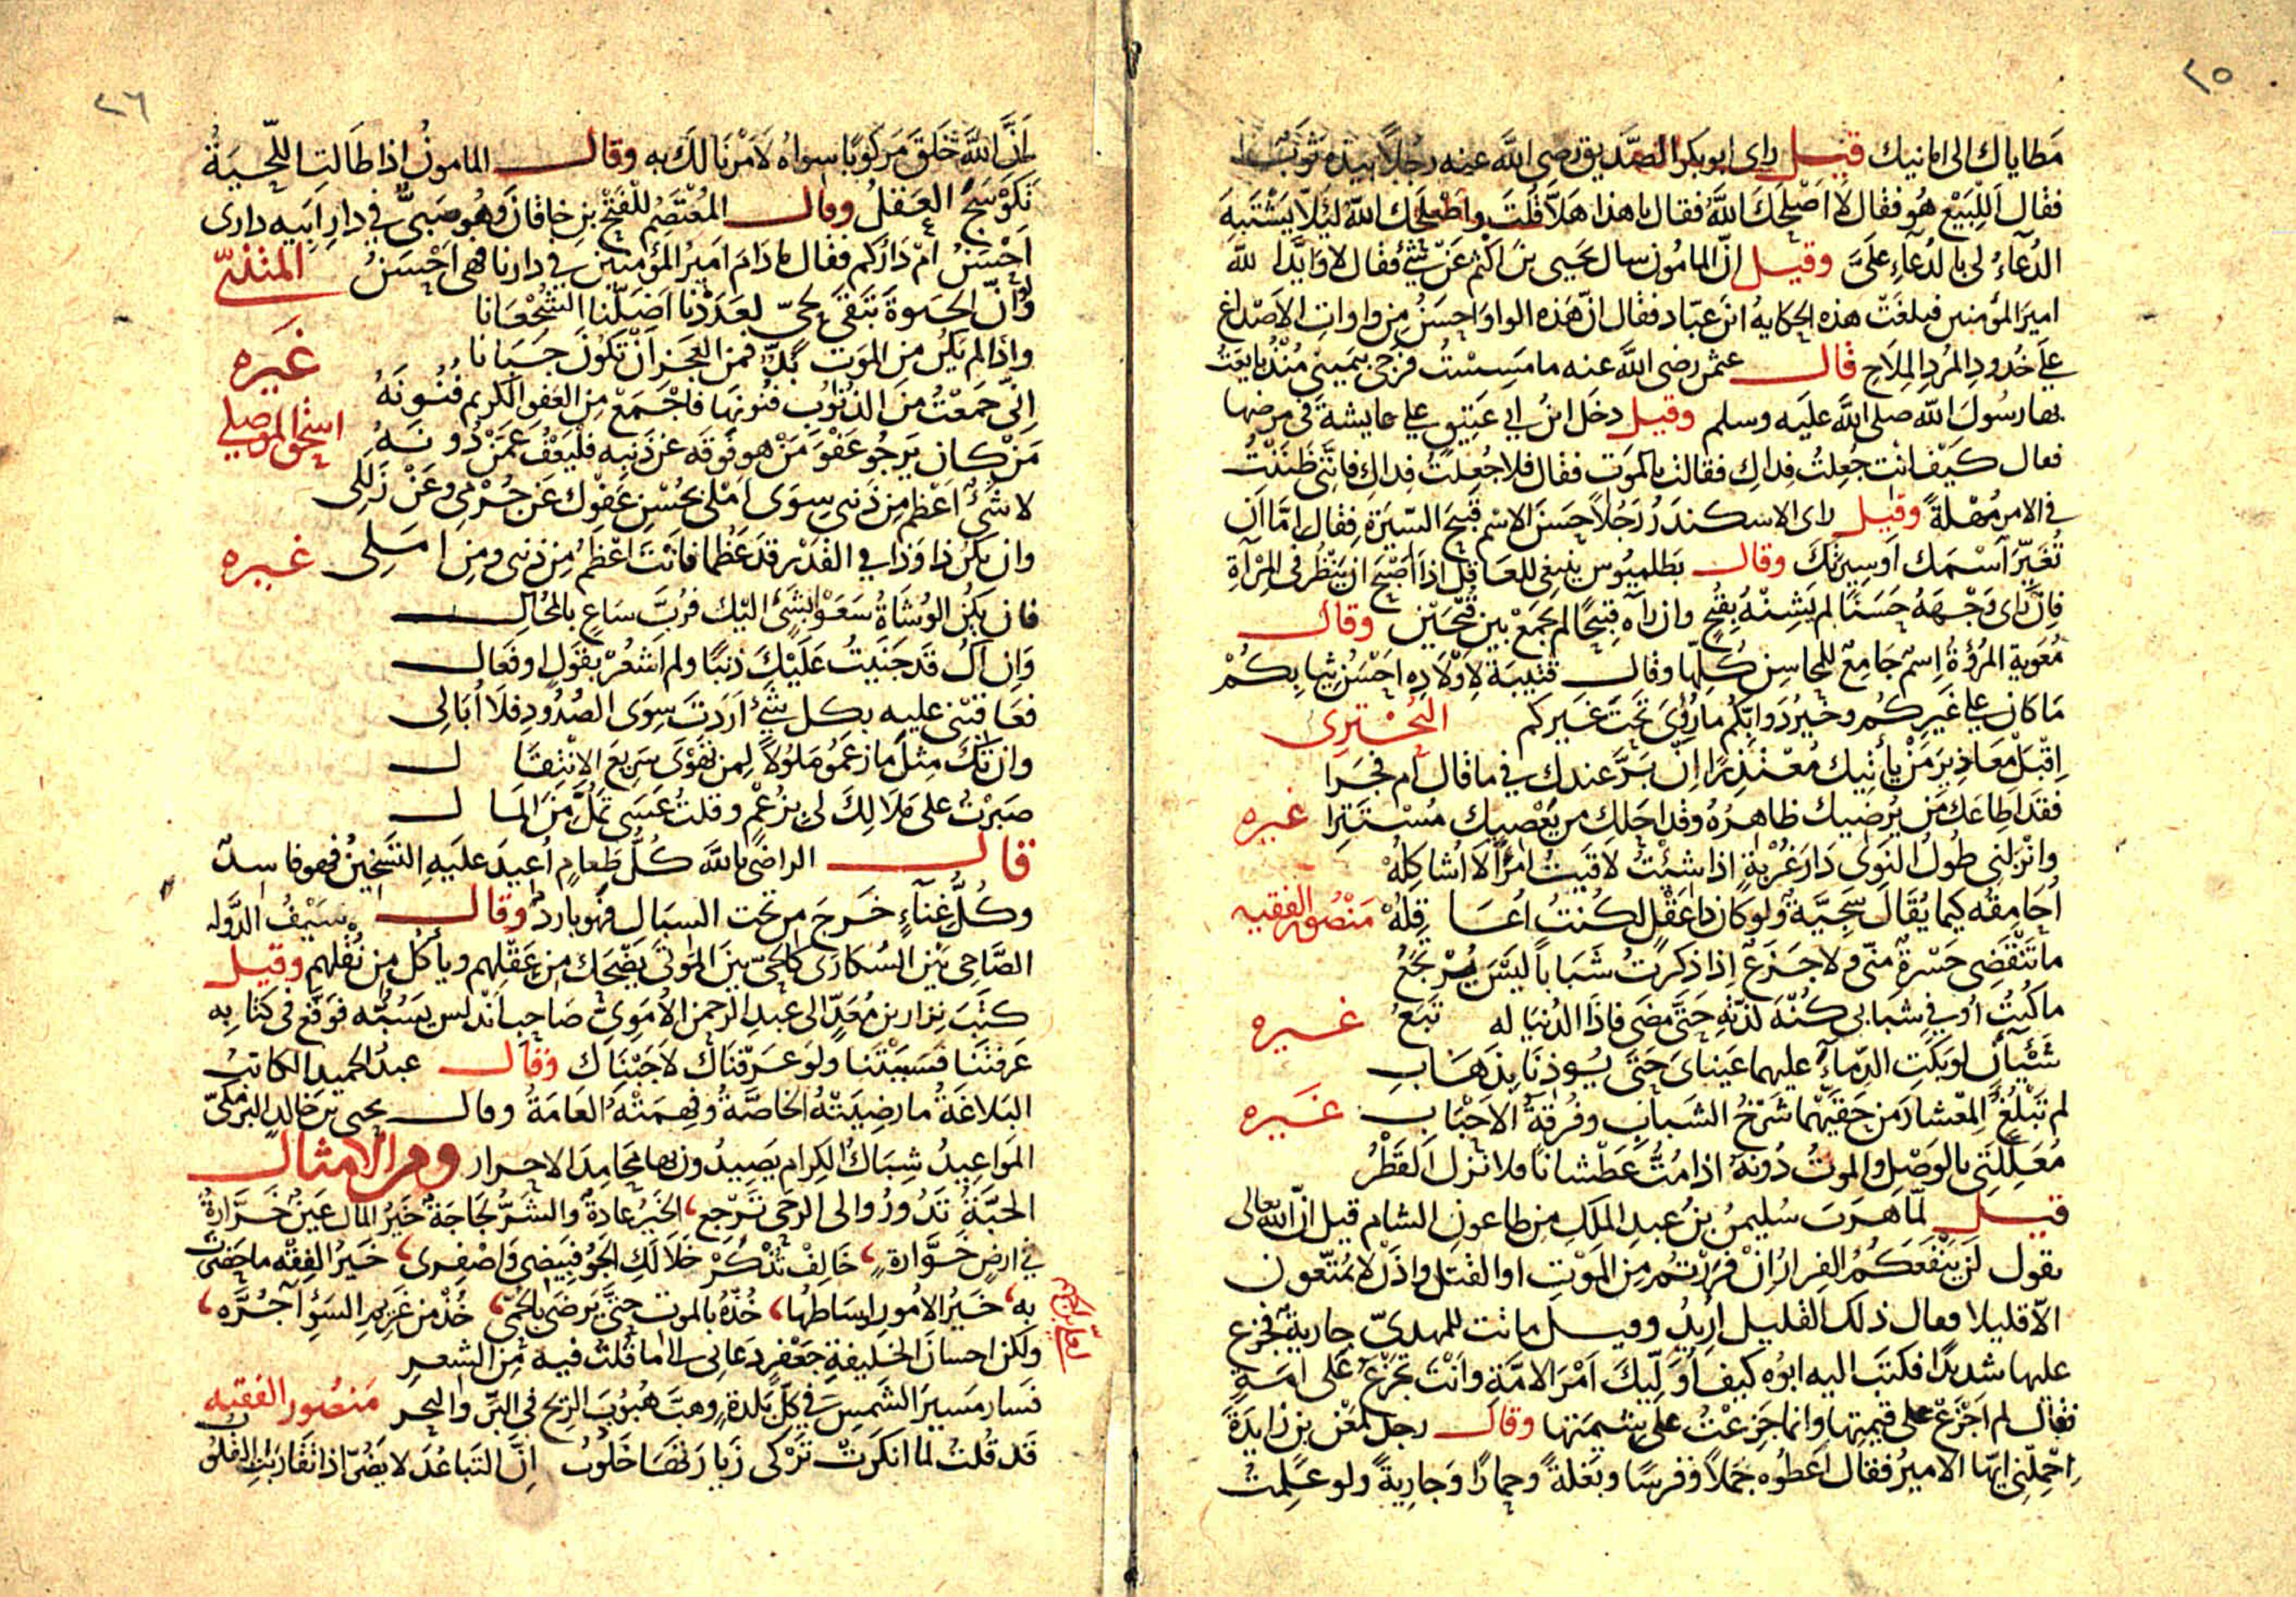 ٢٥
مَطاياك الى امانيك قيل راى ابو بكر الصّديق رضى اللّه عنه رجُلاً بيَده ثَوبٌ
فقال اَلِلبَيْع هُو فقال لَا اَصْلَحَكَ اللّهُ فقال يا هذا هَلاَّ قُلتَ واَصْلَحَك اللّهُ لئلّا يَشْتَبِهَ
الدُعآءُ لى بالدُعآءِ علَىَّ وقيل انّ المامُون سال يَحيى بنَ اكثم عَنْ شئ فقال لا واَيَّدَ اللّه
اميرَ المؤمنين فبلغَتْ هذه الحكايةُ ابنَ عبّاد فقال انّ هَذه الواوَ احسَنُ مِن واوات الاَصْداغ
على خُدودِ المُردِ المِلَاح قال عثمن رضى اللّه عنه ما مَسِسْتُ فَرْجى بيَمينى مُنْذُ بايَعْتُ
بها رسُولَ اللّه صلى اللّه علَيه وسلم وقيل دخَل ابنُ ابى عَتيق على عايشةَ فى مرضها
فعال كَيْف انت جُعِلتُ فداكِ فقالت بالمَوت فقال فلا جُعِلتُ فِداكِ فاِنّى ظنَنْتُ
فى الامر مُهْلةً وقيل راى الاسكندَرُ رَجُلاً حسَنَ الاسْم قَبيحَ السّيرَة فقال اِمَّا اَن
تُغيّرَ اَسْمَك اَو سِيرتَكَ وقال بَطلميُوس ينبغى للعاقِل اذا اَصْبَح ان يَنْظُر فى المِرْآة
فاِن رَاى وَجْهَهُ حسَنًا لم يَشِنْهُ بقُبْح وان رآه قَبيحًا لم يَجمَعْ بين قُبْحَيْن وقال
مُعَوية المُرُوّةُ اِسْم جَامِعٌ للمحاسِن كُلّها وقال قتيبَة لِاَوْلَادِه اَحْسَنُ ثِيَابِكُمْ
مَا كان على غَيرِكُم وخَيرُ دَوابّكُم ما رُؤِىَ تحَت غَيركم البُحْترِى
اِقْبَلْ مَعَاذيرَ مَنْ يأتيك مُعْتَذِرًا اِنْ بَرَّ عندك فى ما قال ام فجَرَا
فقد اَطاعَكَ مَن يُرضيك ظاهِرُهُ وقد اجلّك من يَعْصيك مُسْتَتِرا غيره
وانزلنى طُولُ النَوَى دَارَ غُرْبةٍ اذا شئتُ لَاقَيتُ امرَاً لَا اُشاكِلُهْ
اُحَامِقُه كيما يُقَالَ سَجِيَّةٌ ولو كان ذا عَقْل لكُنتُ اُعَاقِلُهْ مَنْصُور الفقيه
ما تَنْقَضِى حَسْرةٌ منّى ولا جَزَع اِذا ذكرتُ شَبَاباً لَيْسَ يُرْتجَعُ
ما كُنتُ اُوفى شبابى كُنْهَ لذّتِه حَتّى مضَى فاذَا الدُنيَا له تَبَعُ غيره
شَيْآنِ لو بكَتِ الدِمآءَ عليهما عَيناىَ حَتّى يُوذنَا بذَهَابِ
لم تَبْلُغَا المِعْشارَ من حَقَّيْهما شَرْخُ الشبابِ وفُرقةُ الاَحْبَابِ غَيره
مُعَلِّلَتِى بالوَصْلِ والموتُ دُونَهُ اذا مُتُّ عَطْشانًا فلا نزل اَلقَطْرُ
قيل لمّا هرَبَ سُليمٰن بنُ عبدِ الملَكِ مِن طاعونِ الشام قيل انّ اللّه تعالى
يقول لَن يَنْفَعَكُمُ الفِرارُ اِنْ فرَرْتُم مِن المَوْتِ او القتل واِذًا لا تُمَتّعون
الّا قليلا فعال ذلك القليل اُرِيدُ وقيل ماتت للمهدىّ جارية فجزع
عليها شديدًا فكتبَ اليه ابوُه كيف اُوَلّيكَ اَمْرَ الامّة واَنْتَ تجْزَعُ عَلى امَةٍ
فقال لم اَجزَعْ على قيمتِها وانما جَزِعْتُ على شيمَتِها وقال رجل لمَعْن بن زايدَةَ
اِحْمِلْنى ايّها الاميرُ فقال اَعطُوه جملاً وفرسًا وبَغلةً وحمارًا وَجارِيةً ولو عَلِمت
٢٦
اَنَّ اللّهَ خَلَقَ مَركُوبًا سِواهُ لَاَمَرْنَا لَكَ به وقال المامونُ اذا طَالتِ اللّحيَةُ
تَكَوْسَجَ العَقلُ وقال المُعْتصَمُ للفَتْح بنِ خاقانَ وهُو صَبىٌّ فى دارِ اَبيه دارى
اَحْسَنُ امْ دَارُكم فقال ما دَامَ اَميرُ المؤمنين فى دارنا فهى اَحْسَنُ المتنبّى
ولَوْ اَنّ الحيَوةَ تَبْقَى لحَىّ لعَدَدْنا اَضَلّنَا الشُجْعَانا
واِذا لم يَكُن من المَوت بُدٌّ فمن العَجزِ اَنْ تكُونَ جَبَانا غَيره
اِنّى جمَعْتُ منَ الذنُوب فنُونَها فاجْمَعْ مِن العَفوِ الكريم فُنُونَهُ
مَنْ كان يَرجُو عَفْوَ مَنْ هو فَوقَه عن ذَنبه فليَعْفُ عمَّنْ دُونَهُ اسْحٰق الموصلى
لا شَئَ اَعْظمُ مِن ذنبى سِوَى اَملى بحُسْنِ عَفوِك عَن جُرْمى وعَنْ زَلَلى
وان يَكُن ذا وَذا فى القَدْر قد عَظُما فاَنْتَ اَعْظَمُ مِن ذنبى ومِن اَمَلى غيره
فان يكُنِ الوُشاةُ سعَوْا بشَئٍ اليك فرُبَّ سَاعٍ بالمُحالِ
وَاِن اَكُ قَد جنَيتُ عَلَيْكَ ذنبًا ولم اَشعُرْ بقَول او فَعال
فعَاقِبْنى عليه بكل شَئٍ اَرَدتَ سِوَى الصُدُودِ فلَا اُبَالى
وان تَكُ مِثلَ ما زعَمُو مَلُولًا لِمن تَهْوَى سَرِيعَ الانتِقَال
صبَرْتُ على مَلَالِكَ لى بزُعْمٍ وقلتُ عسَى تَمَلُّ مِنَ المَلَال
قال الراضى باللّه كُلُّ طَعامٍ اُعيدَ علَيهِ التَسْخِينُ فهو فاسدٌ
وكُلُّ غنآءٍ خَرجَ من تحت السبَال فهُو باردٌ وقال سَيْفُ الدَّوله
الصَّاحِى بَين السُكارَى كالحَىّ بينَ المَوتَى يَضْحَك من عَقْلِهم ويأكُل مِن نُقْلهم وقيل
كتَبَ نِزار بن مُعَدّ الى عبدِ الرحمن الاُمَوِىّ صَاحبِ اَنْدلُس يَسُبُّه فوَقّع فى كتابِه
عَرَفْتَنا فسَبَبْتَنا ولو عَرَفناكَ لَاَجَبْنَاك وقال عبدُ الحميد الكاتبُ
البَلاغَةُ ما رضِيَتْهُ الخاصَّةُ وفَهِمَتْهُ العَامّةُ وقال يحيى بن خالد البَرْمَكىّ
المَواعِيدُ شِبَاكُ الكِرامِ يَصيدُون بها محَامِدَ الاحرار ومن الامثال
الحَبَّةُ تَدُورُ والى الرحَى تَرْجِع، الخَيرُ عادةٌ والشَرُّ لجَاجَةٌ خَيْرُ المال عَينٌ خَرَّارةٌ
فى ارضٍ خَوَّارةٍ، خَالِفْ تُذْكَرْ خَلَا لَكِ الجَوُّ فبيضِى وَاصْفِرى، خَيرُ الفِقْهِ ما حَضَرْتَ
به، خَيرُ الامُورِ اَوسَاطُها، خُذْهُ بالموتِ حتّى يَرضَى بالحُمّى، خُذْ من غَريمِ السَوْءِ آجُرَّه،
ولٰكن احسانَ الخليفةِ جَعْفرٍ دَعانى الى ما قُلتُ فيه مِنَ الشعرِ
فسارَ مَسيرَ الشَمسِ فى كلّ بَلدةٍ وهبَّ هبُوبَ الرّيح فى البَرّ والبحر مَنصُور الفقيه
قَد قُلتُ لما انكرَتْ تَرْكى زِيارتَها خَلُوبُ اِنّ التَباعُدَ لا يَضُرّ اذا تقَارَبَتِ القُلُوبُ